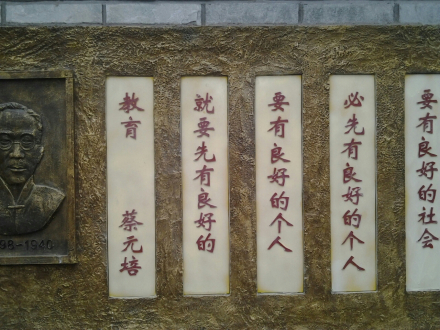 要有良好的社会
必先有良好的个人
要有良好的个人
就要先有良好的
教育 蔡元培
-1940